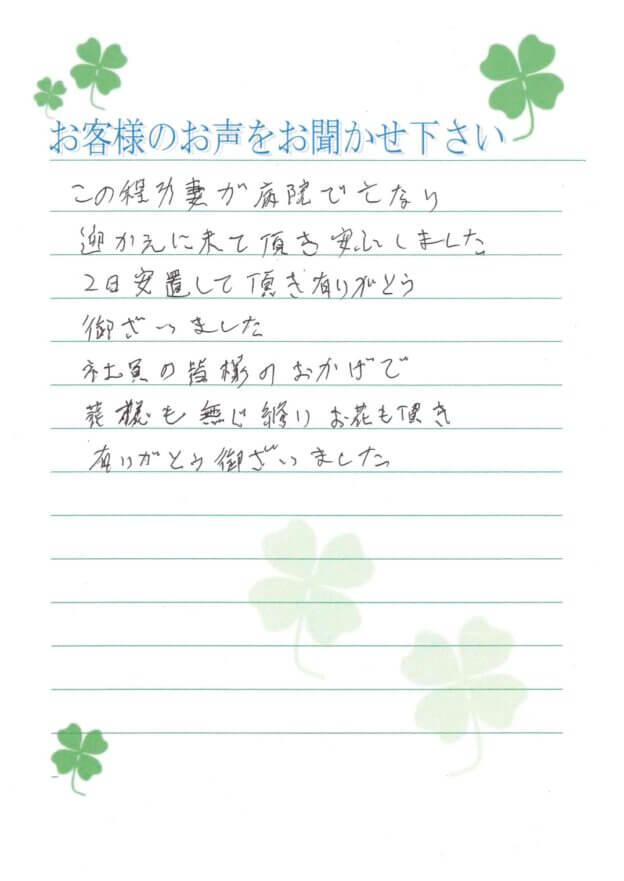 お客様のお声をお聞かせ下さい
この程 妻が病院で亡なり
迎かえに来て頂き安心しました
2日安置して頂き有りがとう
御ざいました
社員の皆様のおかげで
葬様も無じ終り お花も頂き
有りがとう御ざいました